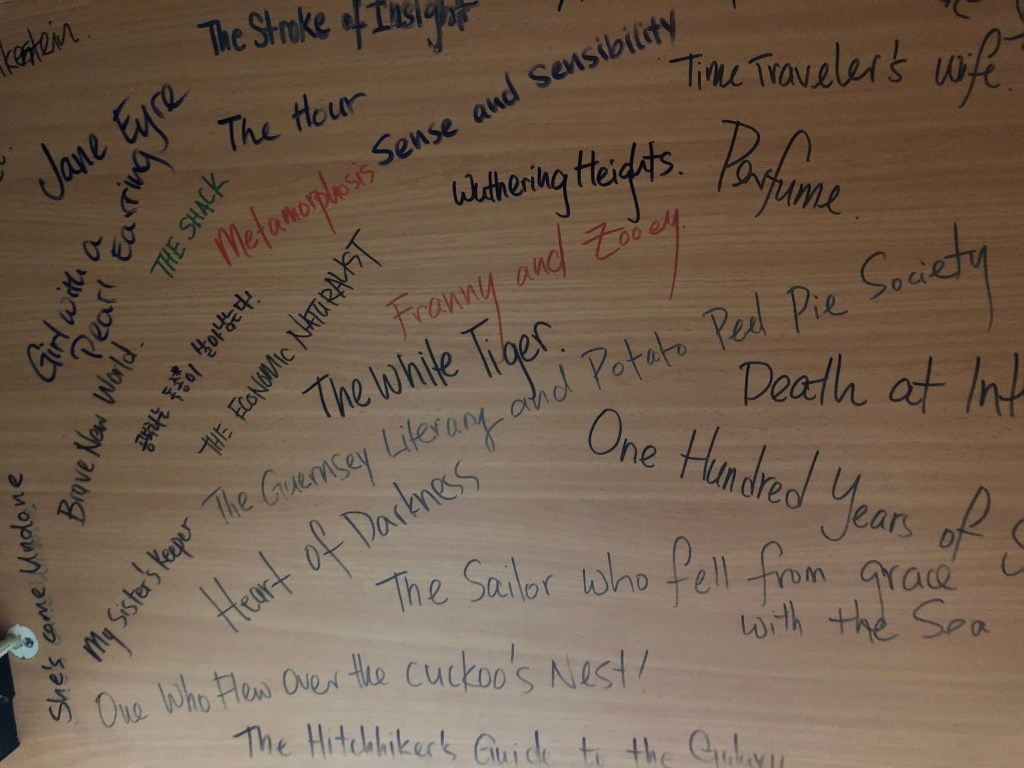 The Stroke of Insight
Time Traveler's Wife.
Jane Eyre
The Hour
Sense and Sensibility
Wuthering Heights.
Perfume.
THE SHACK
Metamorphosis
Girl with a
Pearl Earring
Franny and Zooey.
THE ECONOMIC NATURALIST
The White Tiger.
The Guernsey Literary and Potato Peel Pie Society
Death at
Brave New World.
One Hundred Years of
Heart of Darkness
The Sailor who fell from grace
with the Sea
She's came Undone
My Sister's Keeper
One Who Flew Over the cuckoo's Nest!
The Hitchhiker's Guide to the Galaxy